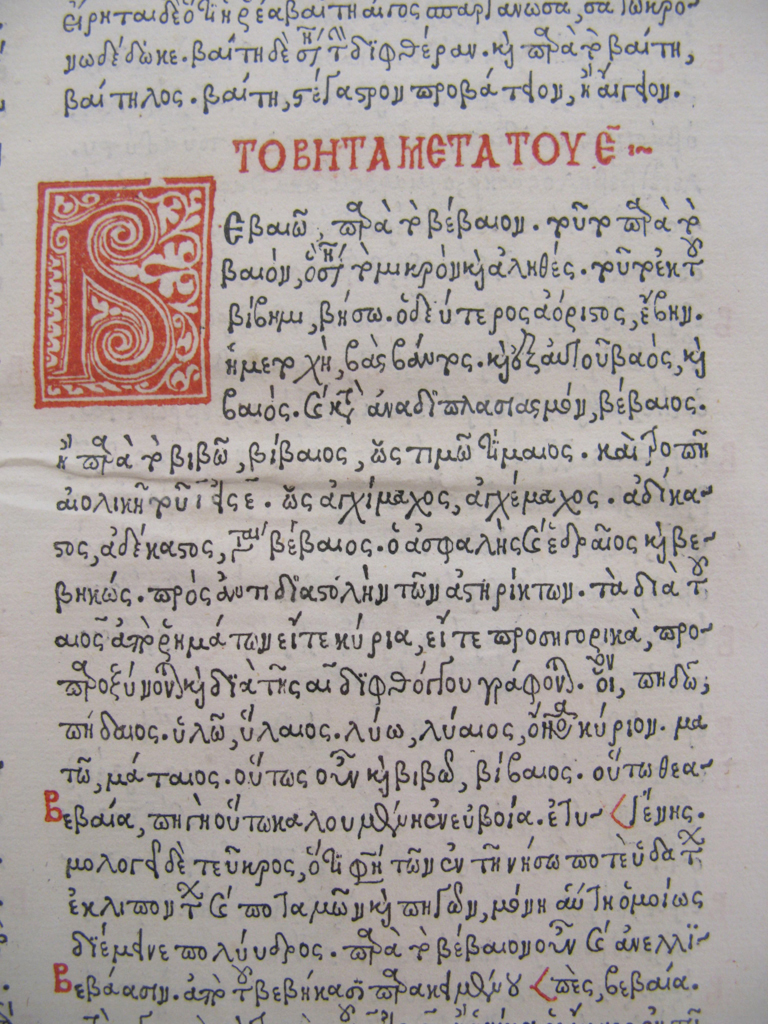 εἴρηται δὲ ὅτι ἡ ῥέα βαίτη αἰγὸς σπαργανώσασα τῷ κρό-
νῳ δέδωκε. βαίτην δὲ τὴν διφθέραν. καὶ παρὰ τὸ βαίτη,
βαίτηλος. βαίτη, στέγαστρον προβάτειον, ἢ αἴγειον.
ΤΟ ΒΗΤΑ ΜΕΤΑ ΤΟΥ Ε
Βεβαιῶ, παρὰ τὸ βέβαιον. τοῦτο παρὰ τὸ
βαιὸν, ὃ σημαίνει τὸ μικρὸν καὶ ἀληθές. τοῦτο ἐκ τοῦ
βίβημι, βήσω. ὁ δεύτερος ἀόριστος, ἔβην.
ἡ μετοχὴ, βὰς βάντος. καὶ ἐξ αὐτοῦ βαὸς, καὶ
βαιός. καὶ κατὰ ἀναδιπλασιασμὸν, βέβαιος.
ἢ παρὰ τὸ βιβῶ, βίβαιος, ὥς τιμῶ τίμαιος. καὶ τροπῇ
αἰολικῇ τοῦ ι εἰς ε. ὥς ἀγχίμαχος, ἀγχέμαχος. ἀδίκα-
στος, ἀδέκαστος, βέβαιος. ὁ ἀσφαλὴς καὶ ἑδραῖος καὶ βε-
βηκώς. πρὸς ἀντιδιαστολὴν τῶν ἀστηρίκτων. τὰ διὰ τοῦ
αιος ἀπὸ ῥημάτων εἴτε κύρια, εἴτε προσηγορικὰ, προ-
προξύνονται καὶ διὰ τῆς αι διφθόγγου γράφονται. οἷον, πηδῶ,
πήδαιος. ὑλῶ, ὕλαιος. λύω, λύαιος, ὄνομα κύριον. μα
τῶ, μάταιος. οὕτως οὖν καὶ βιβῶ, βίβαιος. οὕτω θεα-
Βεβαία, πηγὴ οὕτω καλουμένη ἐν εὐβοίᾳ. ἐτυ- γένης.
μολογεῖ δὲ τεῦκρος, ὅτι φησὶ τῶν ἐν τῇ νήσῳ ποτὲ ὑδάτων
ἐκλιπόντων καὶ ποταμῶν καὶ πηγῶν, μόνη αὕτη ὁμοίως
διέμεινε πολύυδρος. παρὰ τὸ βέβαιον οὖν καὶ ἀνελλι-
Βεβάασιν. ἀπὸ τοῦ βεβήκασι παρακειμένου πὲς, βεβαία.